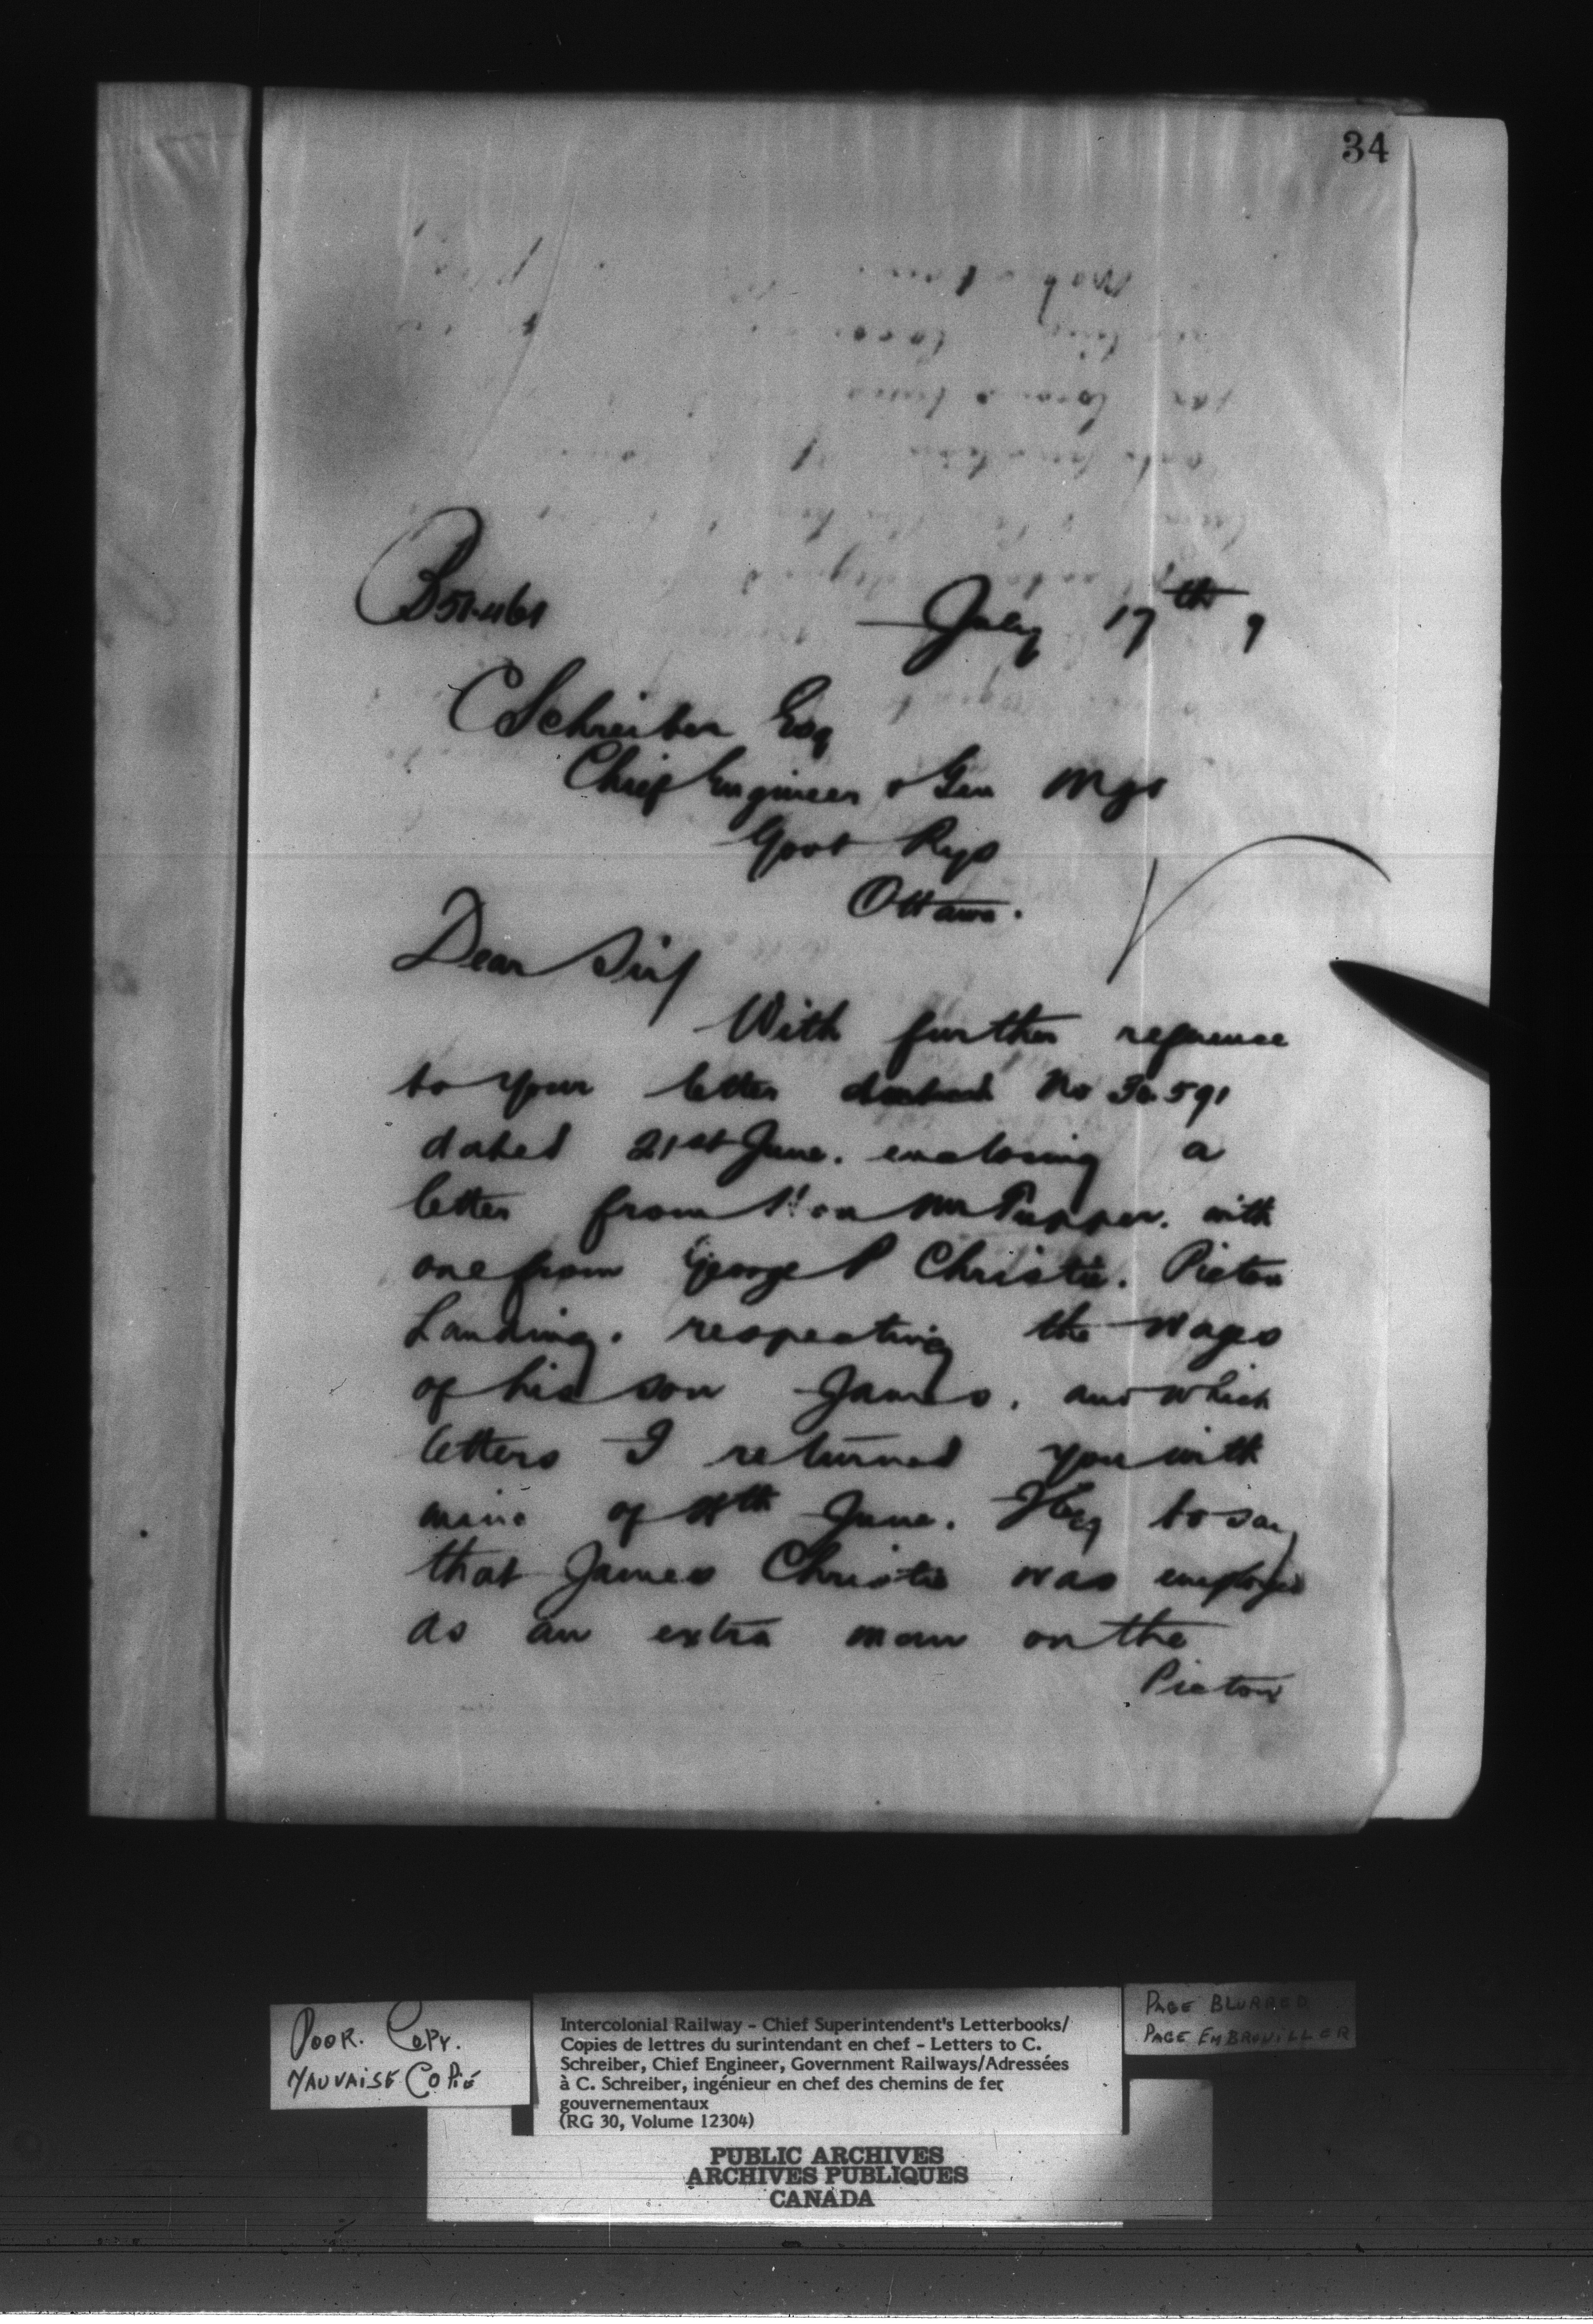 34
B51461
July 17th 9
C Schreiber Esq
Chief Engineer & Gen Mgr
Govt Rys
Ottawa.
Dear Sir/
With further reference
to your letter No 36.591
dated 21st June. enclosing a
letter from Hon Mr Tupper. with
one from George P Christie. Pictou
Landing. respecting the wages
of his son James, and which
letters I returned you with
mine of June. I beg to say
that James Christie was employed
as an extra man on the
Pictou
POOR. COPY.
MAUVAISE COPIE
Intercolonial Railway - Chief Superintendent's Letterbooks/
Copies de lettres du surintendant en chef - Letters to C.
Schreiber, Chief Engineer, Government Railways/Adressées
à C. Schreiber, ingénieur en chef des chemins de fer
gouvernementaux
(RG 30, Volume 12304)
PAGE BLURRED
PAGE EMBROUILLER
PUBLIC ARCHIVES
ARCHIVES PUBLIQUES
CANADA